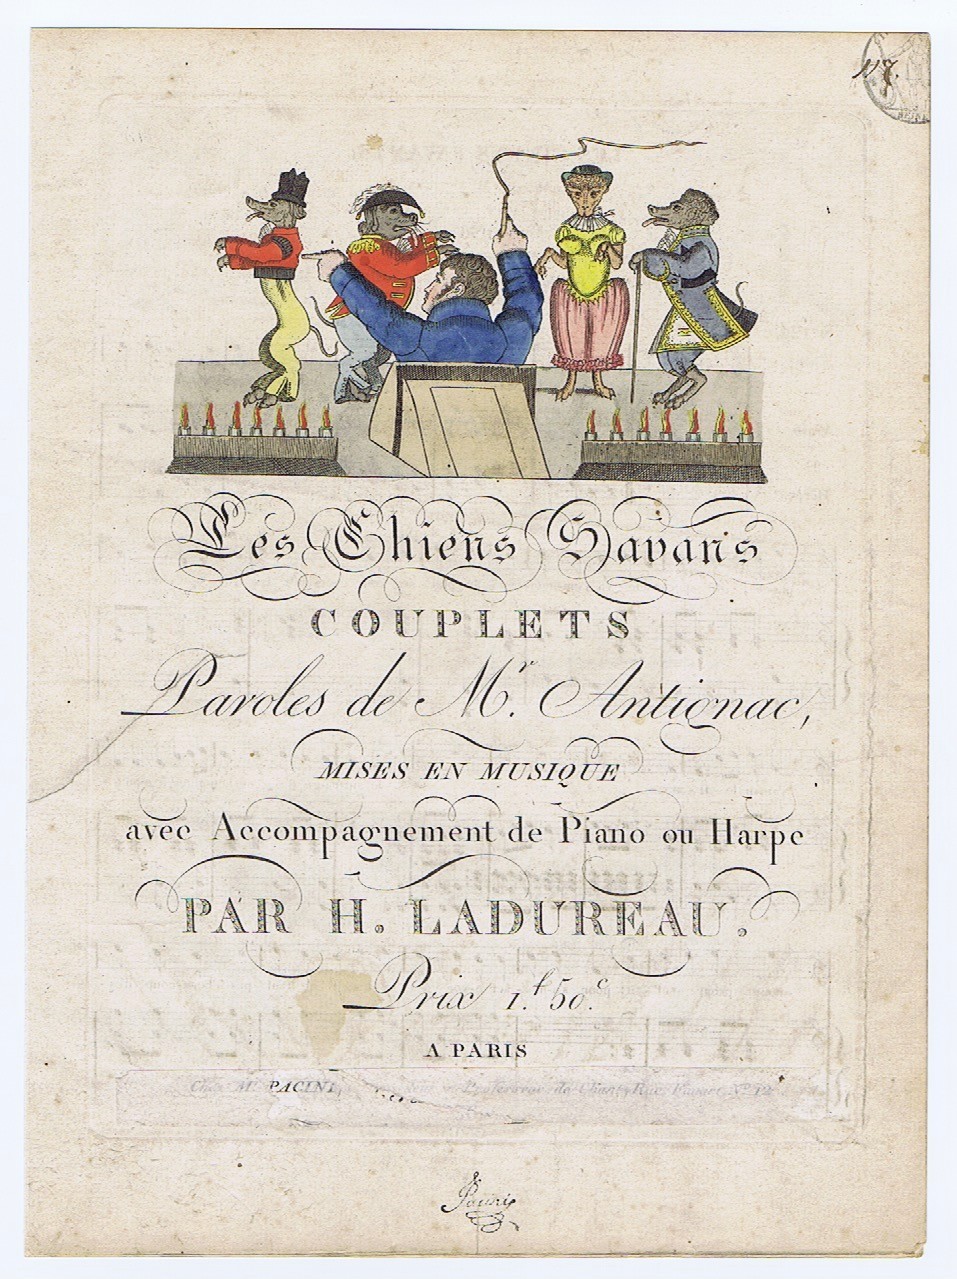 117.
Les Chiens Savans
COUPLETS
Paroles de Mr. Antignac,
MISES EN MUSIQUE
avec Accompagnement de Piano ou Harpe
PAR H. LADUREAU.
Prix 1.f 50.c
A PARIS
Chez Mr. PACINI, Professeur de Chant, Rue Favart, No. 12